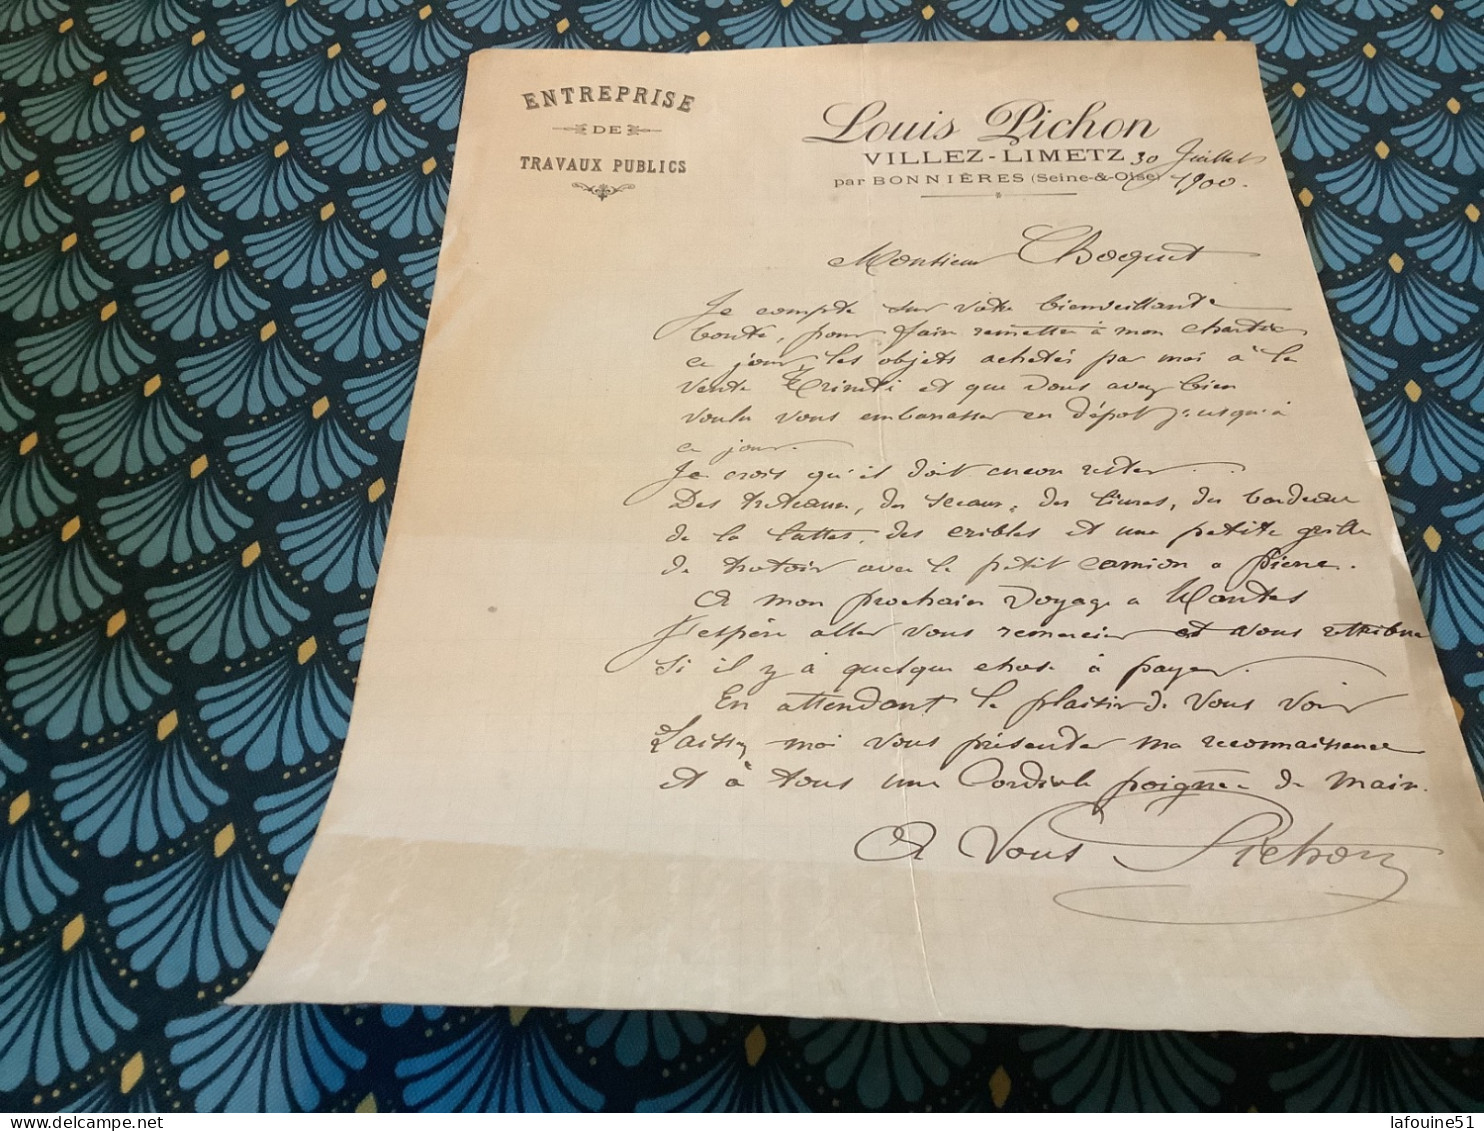 ENTREPRISE
DE
TRAVAUX PUBLICS
Louis Pichon
VILLEZ-LIMETZ 30 Juillet
par BONNIÈRES (Seine-&-Oise) 1900.
Monsieur Choquet
Je compte sur votre bienveillante
bonté, pour fair remettre à mon
ce jour, les objets achetés par moi à la
vente et que vous avez bien
voulu vous embarasser en dépot jusqu'à
ce jour.
Je crois qu'il doit encore rester...
Des treteaux, des seaux, des
de la lattes, des cribles et une petite grille
de trotoir avec le petit camion a pierre.
A mon prochain voyage a Mantes
J'espère aller vous remercier et vous retribuer
Si il y à quelque chose à payer.
En attendant le plaisir de vous voir
Laissez moi vous présenter ma reconnaissance
et à tous une Cordiale poignée de main.
A Vous Pichon
lafouine51